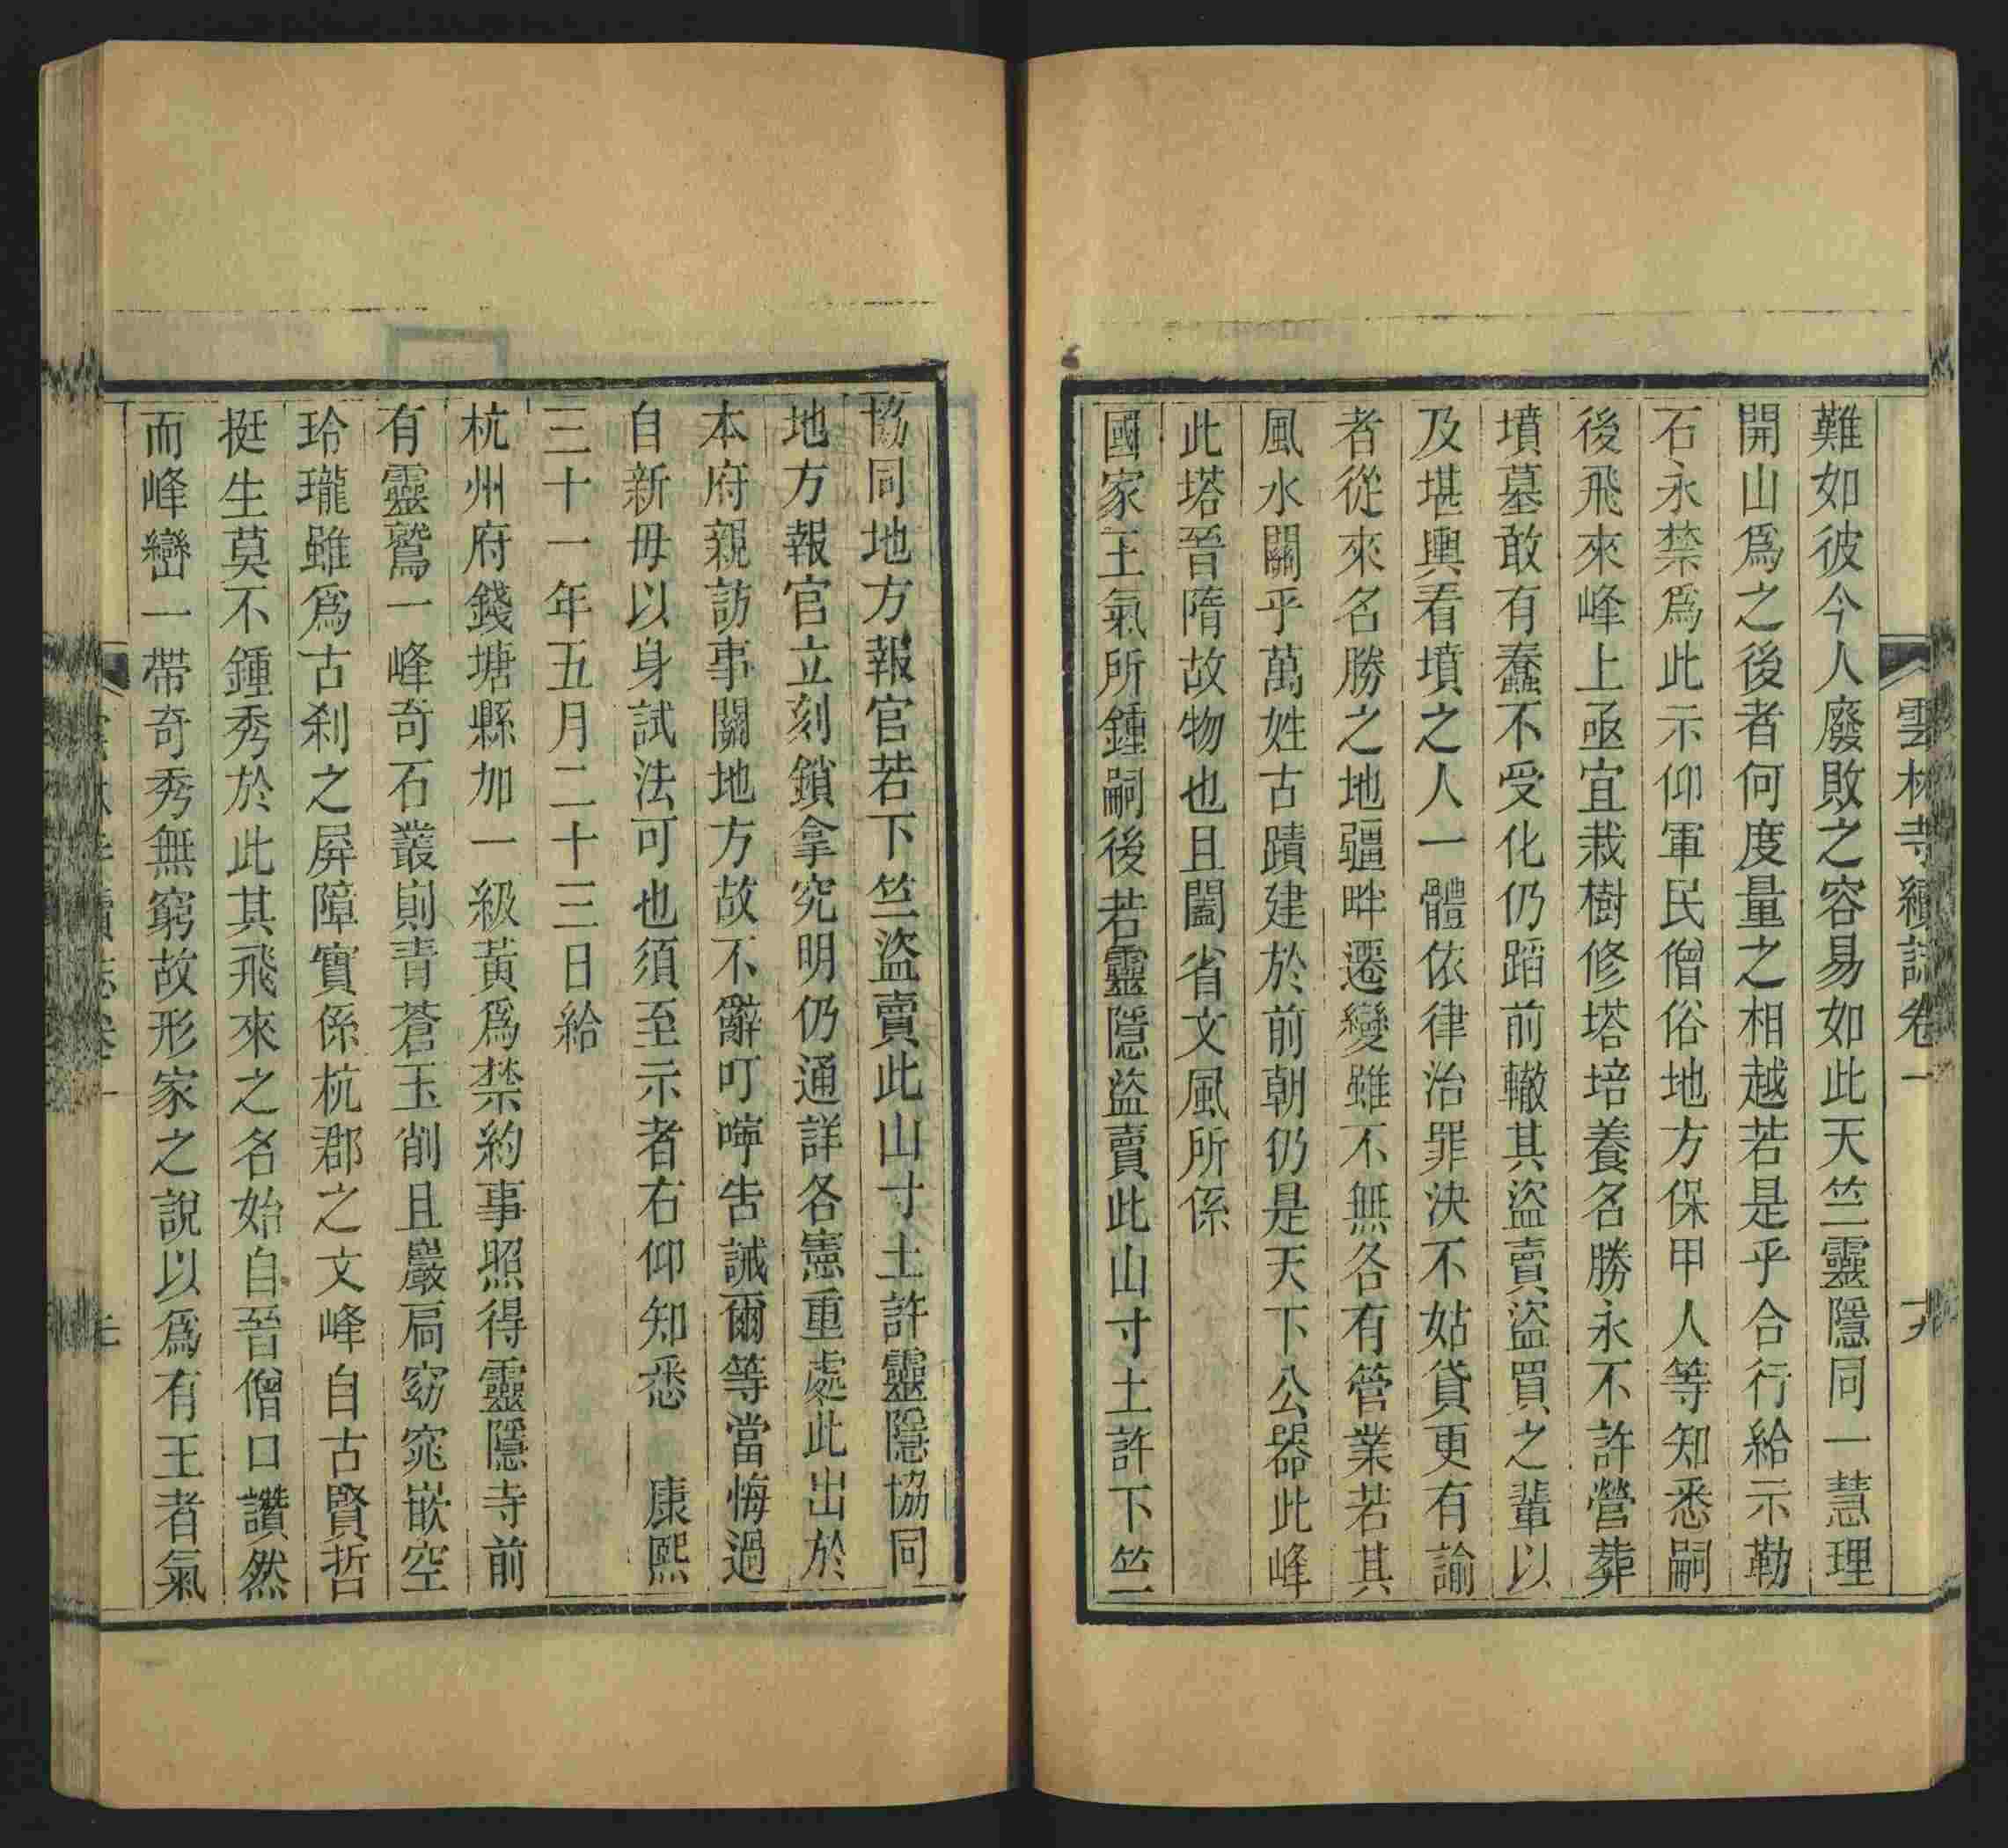 雲林寺續誌卷一
十九
難如彼今人廢敗之容易如此天竺靈隱同一慧理
開山爲之後者何度量之相越若是乎合行給示勒
石永禁爲此示仰軍民僧俗地方保甲人等知悉嗣
後飛來峰上亟宜栽樹修塔培養名勝永不許營葬
墳墓敢有蠢不受化仍蹈前轍其盜賣盜買之輩以
及堪輿看墳之人一體依律治罪決不姑貸更有諭
者從來名勝之地疆畔遷變雖不無各有管業若其
風水關乎萬姓古蹟建於前朝仍是天下公器此峰
此塔晉隋故物也且闔省文風所係
國家王氣所鍾嗣後若靈隱盜賣此山寸土許下竺
協同地方報官若下竺盜賣此山寸土許靈隱協同
地方報官立刻鎖拿究明仍通詳各憲重處此出於
本府親訪事關地方故不辭叮嚀告誡爾等當悔過
自新毋以身試法可也須至示者右仰知悉　康熙
三十一年五月二十三日給
杭州府錢塘縣加一級黃爲禁約事照得靈隱寺前
有靈鷲一峰奇石叢峛青蒼玉削且巖扃窈窕嵌空
玲瓏雖爲古剎之屏障實係杭郡之文峰自古賢哲
挺生莫不鍾秀於此其飛來之名始自晉僧口讚然
而峰巒一帶奇秀無窮故形家之說以爲有王者氣